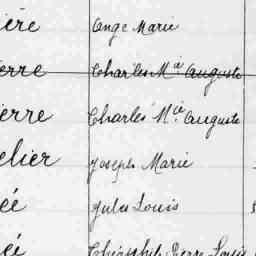 ière Ange Marie
erre Charles M.ie Auguste
erre Charles M.ie Auguste
elier Joseph Marie
ée Jules Louis
éé Théophile Pierre Louis